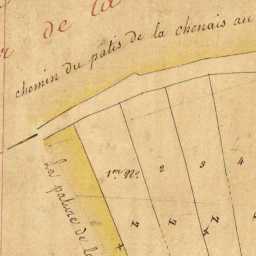 de la
chemin du patis de la chenais au
1re No. 2 3 4
La pature de la